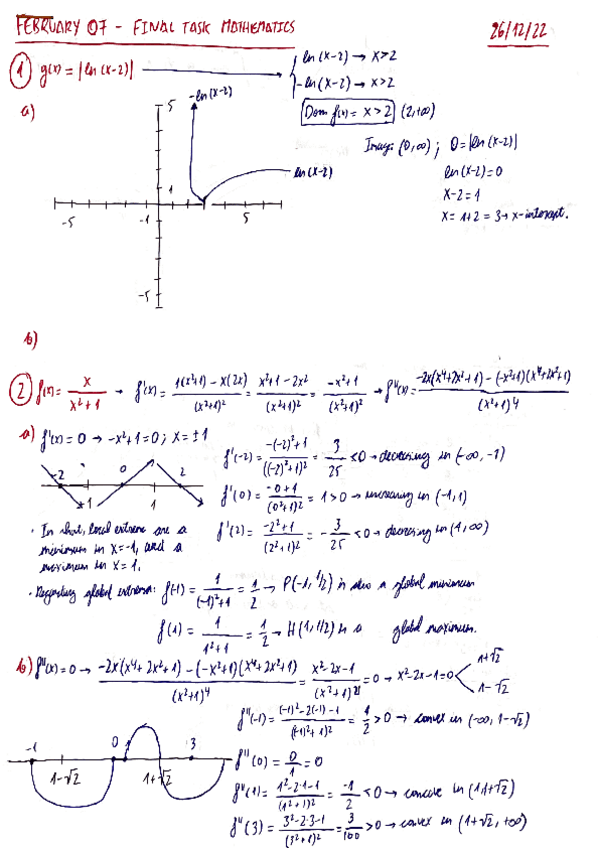 FEBRUARY 07 - FINAL TASK MATHEMATICS 26/12/22
1 g(x) = |ln(x-2)| → ln(x-2) → x>2
-ln(x-2) → x>2
a) 5 -ln(x-2) Dom f(x) = x>2 (2,+∞)
Imag: (0,∞) ; 0=|ln(x-2)|
ln(x-2) ln(x-2)=0
x-2=1
-5 -1 1 5 x = 1+2 = 3 → x-intercept.
-5
b)
2 f(x) = x/(x²+1) → f'(x) = (1(x²+1) - x(2x))/(x²+1)² = (x²+1-2x²)/(x²+1)² = (-x²+1)/(x²+1)² → f''(x) = (-2x(x⁴+2x²+1) - (-x²+1)(x⁴+2x²+1))/(x²+1)⁴
a) f'(x) = 0 → -x²+1=0 ; x = ±1
f'(-2) = (-(-2)²+1)/((-2)²+1)² = 3/25 <0 → decreasing in (-∞, -1)
-2 0 2
-1 1
f'(0) = (-0+1)/(0²+1)² = 1 >0 → increasing in (-1,1)
f'(2) = (-2²+1)/(2²+1)² = -3/25 <0 → decreasing in (1,∞)
· In short, local extreme are a
minimum in x=-1, and a
maximum in x=1.
· Regarding global extrema: f(-1) = 1/((-1)²+1) = 1/2 → P(-1, 1/2) is also a global minimum
f(1) = 1/(1²+1) = 1/2 → H(1,1/2) is a global maximum.
b) f''(x)=0 → (-2x(x⁴+2x²+1) - (-x²+1)(x⁴+2x²+1))/(x²+1)⁴ = (x²-2x-1)/(x²+1)² = 0 → x²-2x-1=0
1+√2
1-√2
f''(-1) = ((-1)²-2(-1)-1)/((-1)²+1)² = 1/2 >0 → convex in (-∞, 1-√2)
-1 0 1 3
1-√2 1+√2
f''(0) = 0/1 = 0
f''(1) = (1²-2·1-1)/(1²+1)² = -1/2 <0 → concave in (1,1+√2)
f''(3) = (3²-2·3-1)/(3²+1)² = 3/100 >0 → convex in (1+√2, +∞)